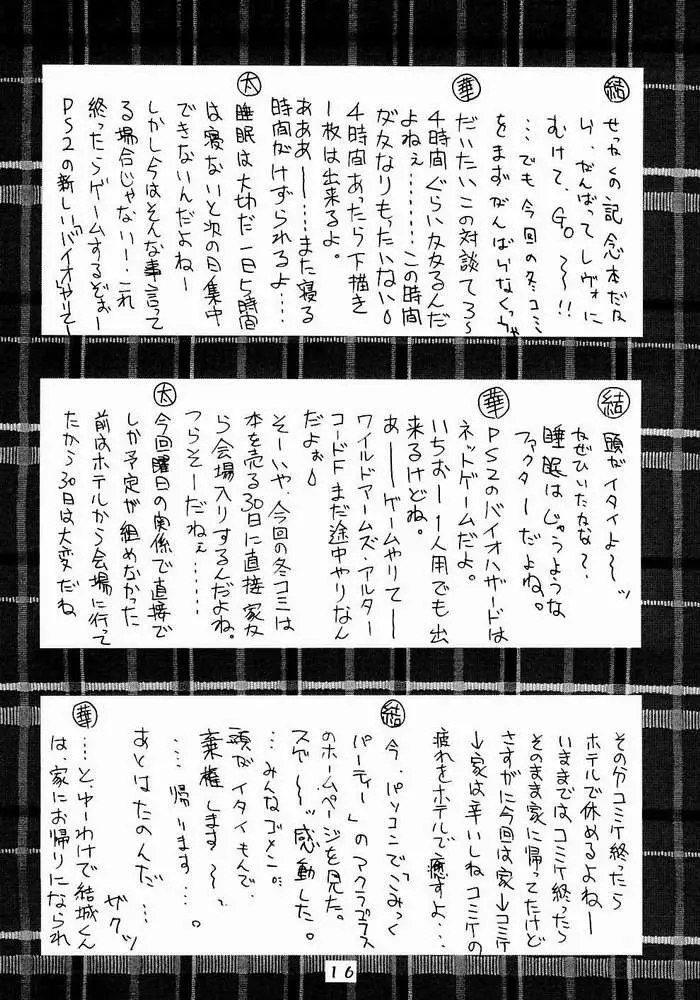 結
せっかくの記念本だな
い、がんばってレヴォに
むけて、GO〜〜!!
…でも今回の冬コミ
をまずがんばらなくっちゃ
華
だいたいこの対談て3〜
4時間ぐらい
よねぇ……この時間
がなりもったいない
4時間あったら下描き
1枚は出来るよ。
あああ──……また寝る
時間がけずられるよ……
太
睡眠は大切だ 一日5時間
は寝ないと次の日集中
できないんだよねー
しかし今はそんな事言って
る場合じゃないー!これ
終ったらゲームするぞぉー
PS2の新しい「バイオ」やりてー
結
頭がイタイよ〜ッ
なぜひいたかな?、
睡眠はじゅうような
ファクターだよね。
華
PS2のバイオハザードは
ネットゲームだよ。
いちおー1人用でも出
来るけどね。
あ──ゲームやりて──
ワイルドアームズ・アルター
コードF まだ途中やりなん
だよぉ
そーいや、今回の冬コミは
本を売る30日に直接家
ら会場入りするんだよね。
つらそーだねぇ……
太
今回曜日の関係で直接で
しか予定が組めなかった
前はホテルから会場に行って
たから30日は大変だね
その分コミケ終ったら
ホテルで休めるよねー
いままではコミケ終ったら
そのまま家に帰ってたけど
さすがに今回は家→コミケ
→家は辛いしねコミケの
疲れをホテルで癒すよ…
結
今、パソコンで「こみっく
パーティー」のアクアプラス
のホームページを見た。
スゲ〜〜ッ感動した。
…みんなゴメン。
頭がイタイもんで、
棄権します〜〜。
……帰ります……。
あとはたのんだ…
ザクッ
華
…と、ゆーわけで結城くん
は、家にお帰りになられ
16